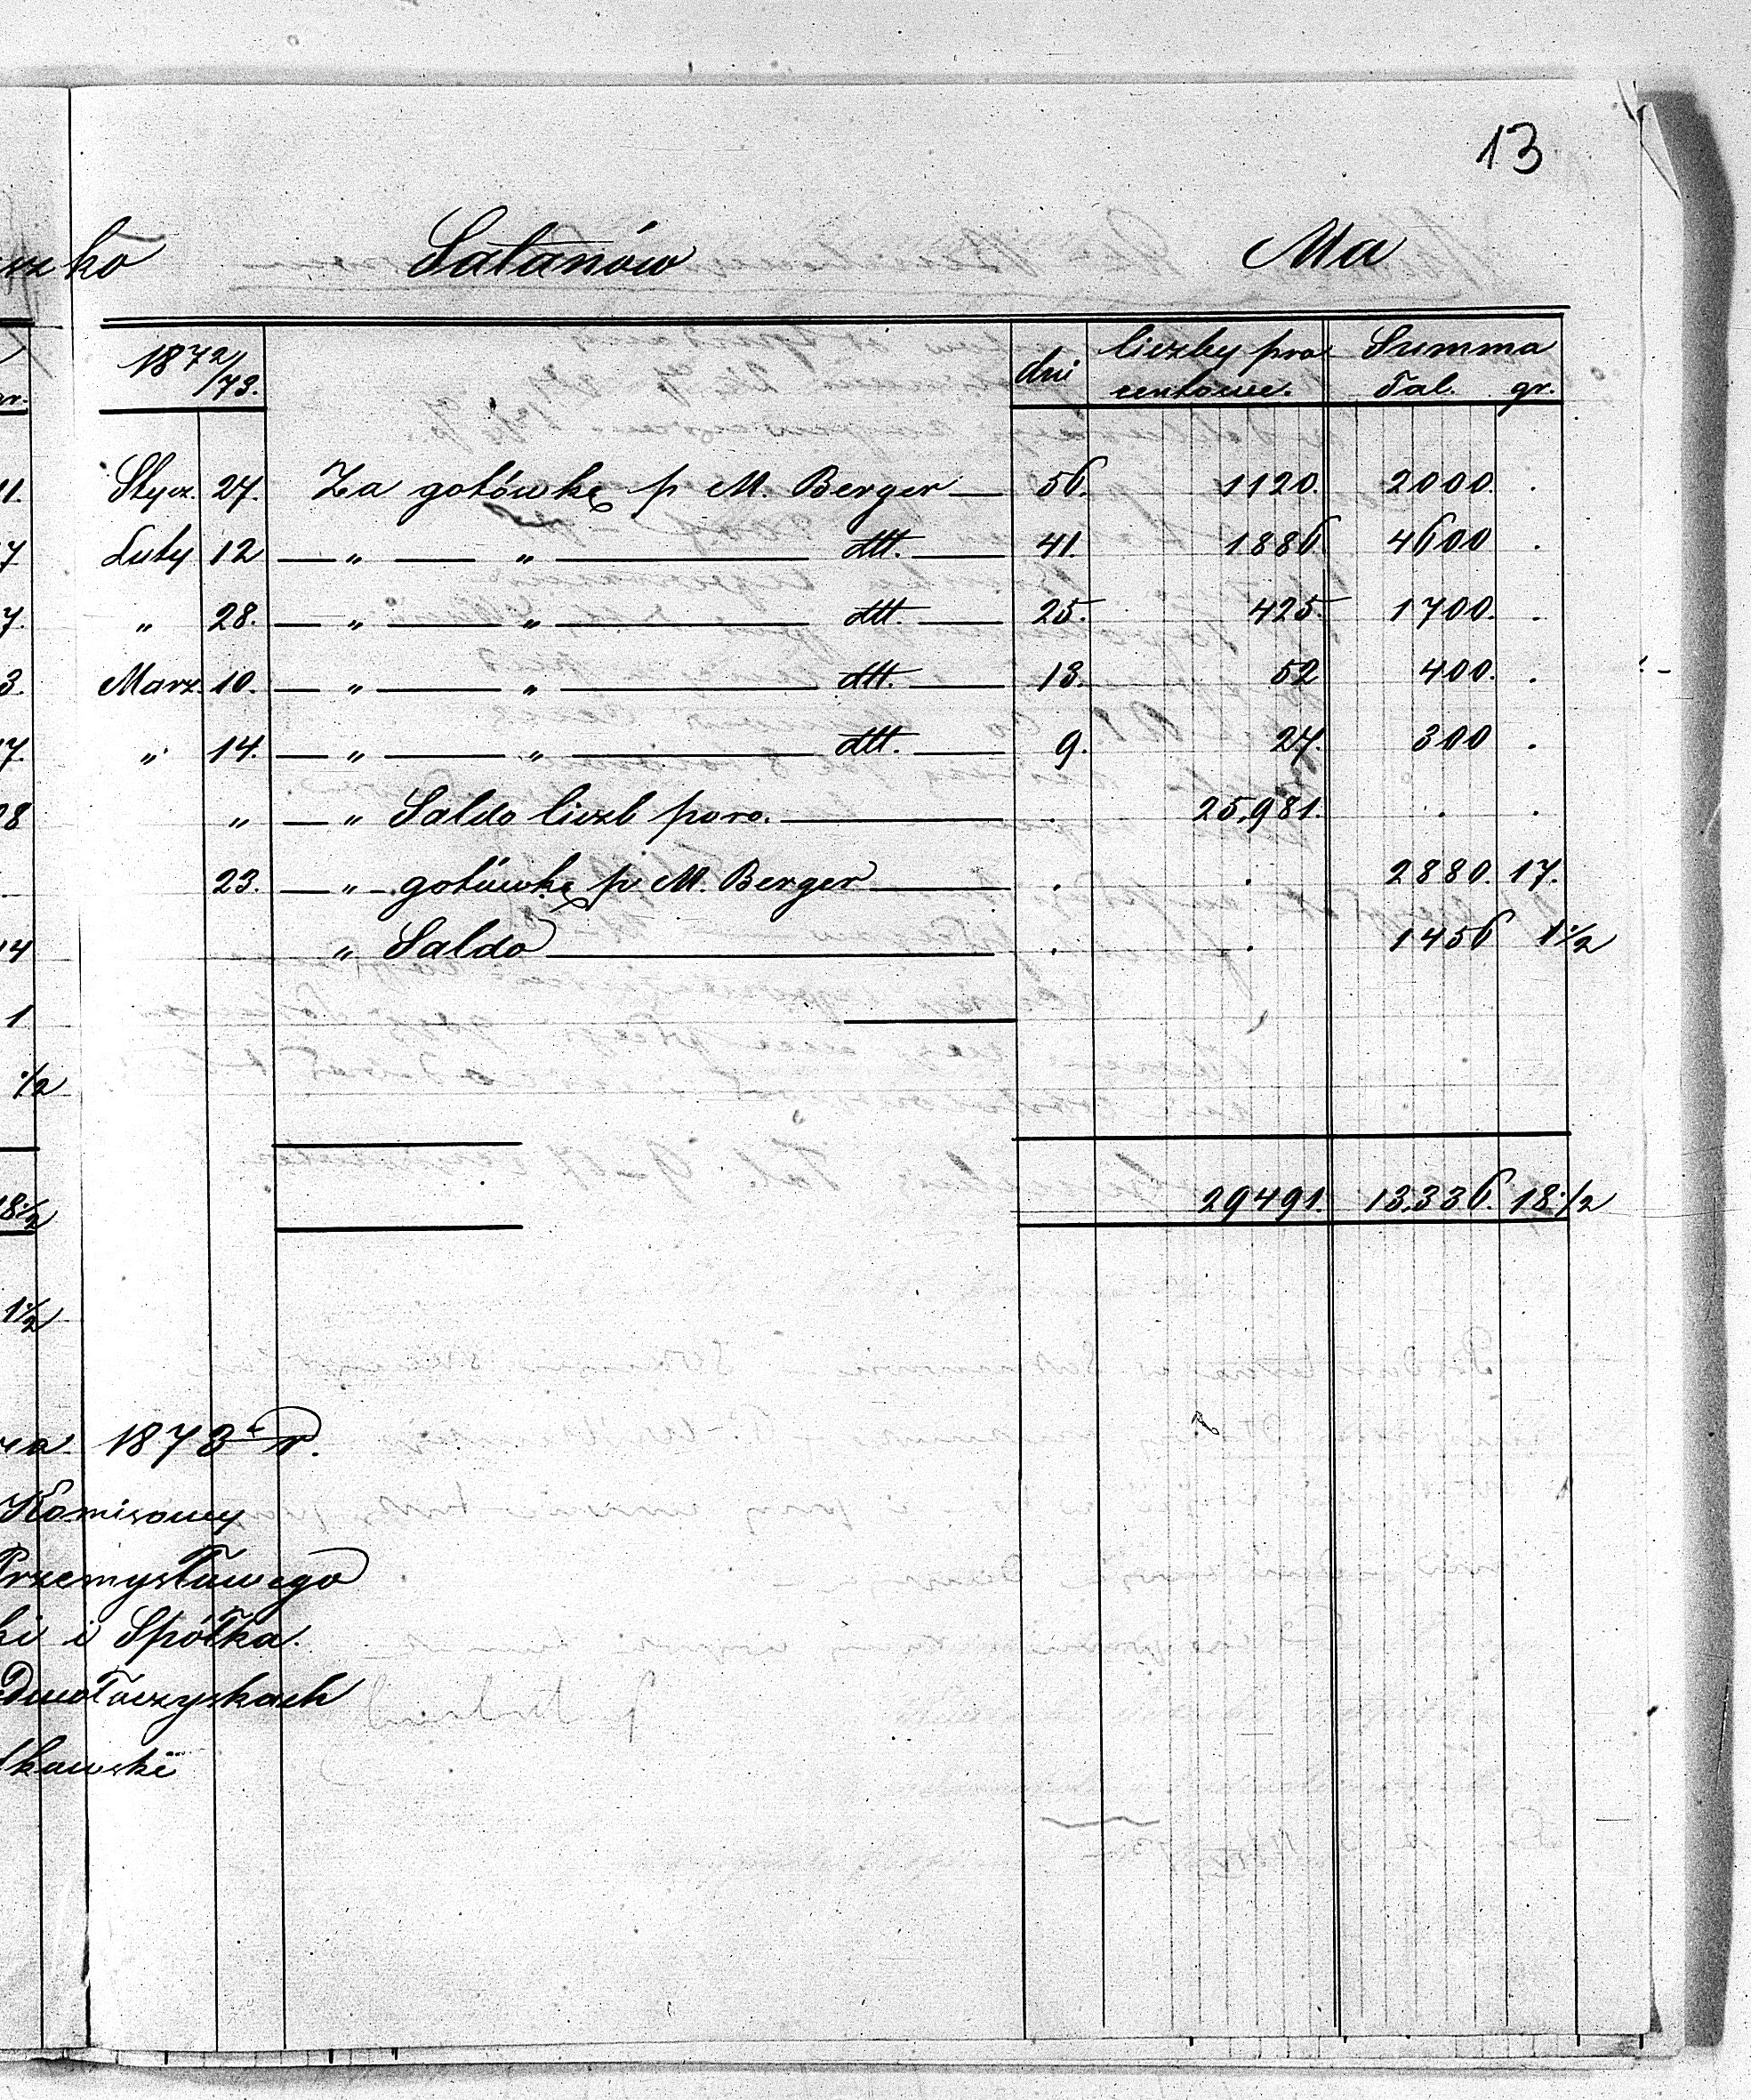 13
ko Satanów Ma
1872/73. dni liczby pro Summa
centowe. Tal. gr.
Stycz. 27. Za gotówkę p M. Berger — 56. 1120. 2000. .
Luty 12 — „ — „ — dtt. — 41. 1886 4600 .
„ 28. — „ — „ — dtt. — 25. 425. 1700. .
Marz. 10. — „ — „ — dtt. — 13. 52 400. .
„ 14. — „ — „ — dtt. — 9. 27. 300 .
„ — „ Saldo liczb poro. — . 25,981. . .
23. — „ — gotówkę p M. Berger — . . 2880. 17.
„ Saldo — . . 1456 1 1/2
29491. 13,336. 18 1/2
11.
7
7.
3.
7.
28
14
1
1/2
18 1/2
1 1/2
1873 r.
Komisowy
Przemysłowego
ki i Spółka.
Dwołoczyskach
kowski